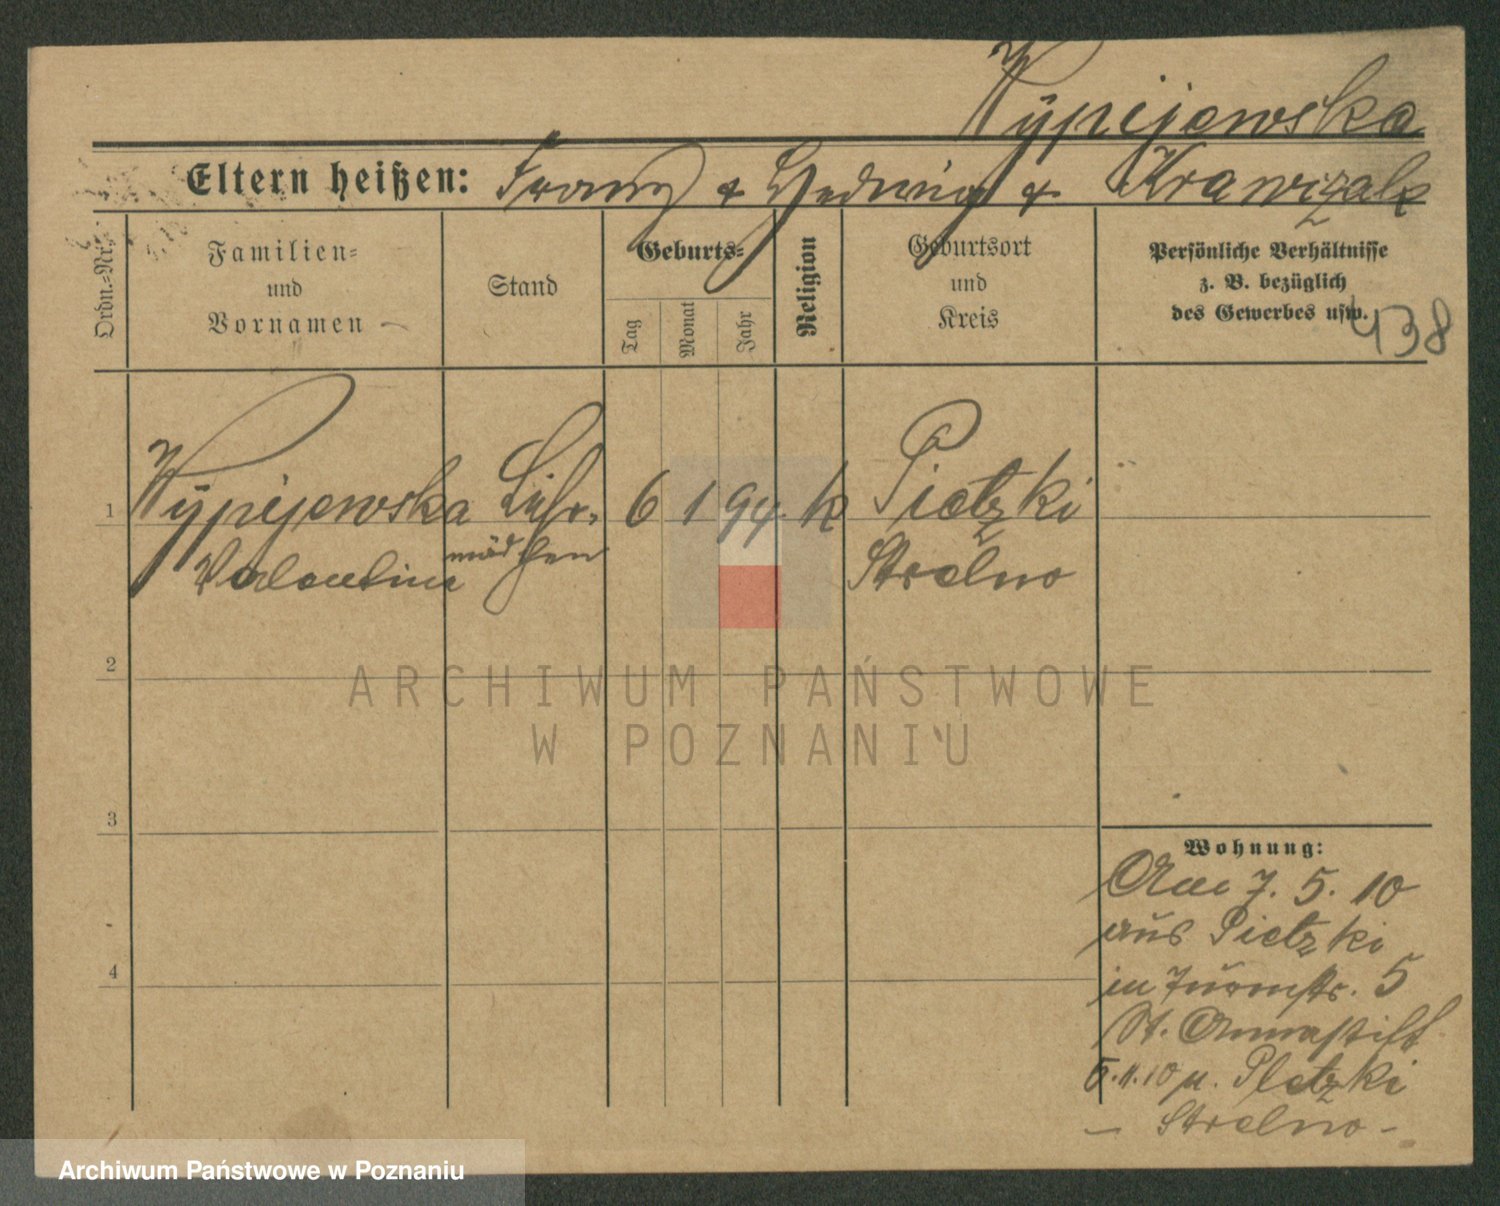 Wypijewska
Eltern heißen: Franz & Hedwig & Krawczak
Ordn.-Nr.
Familien-
und
Vornamen
Stand
Geburts-
Tag
Monat
Jahr
Religion
Geburtsort
und
Kreis
Persönliche Verhältnisse
z. B. bezüglich
des Gewerbes usw.
438
1 Wypijewska Lehr- 6 1 94. k Pietzki
Valentine mädchen Strelno
2
3
4
ARCHIWUM PAŃSTWOWE
W POZNANIU
Wohnung:
Am 7. 5. 10
aus Pietzki
in Turmstr. 5
St. Annastift
5.11.10 n. Pletzki
- Strelno -
Archiwum Państwowe w Poznaniu